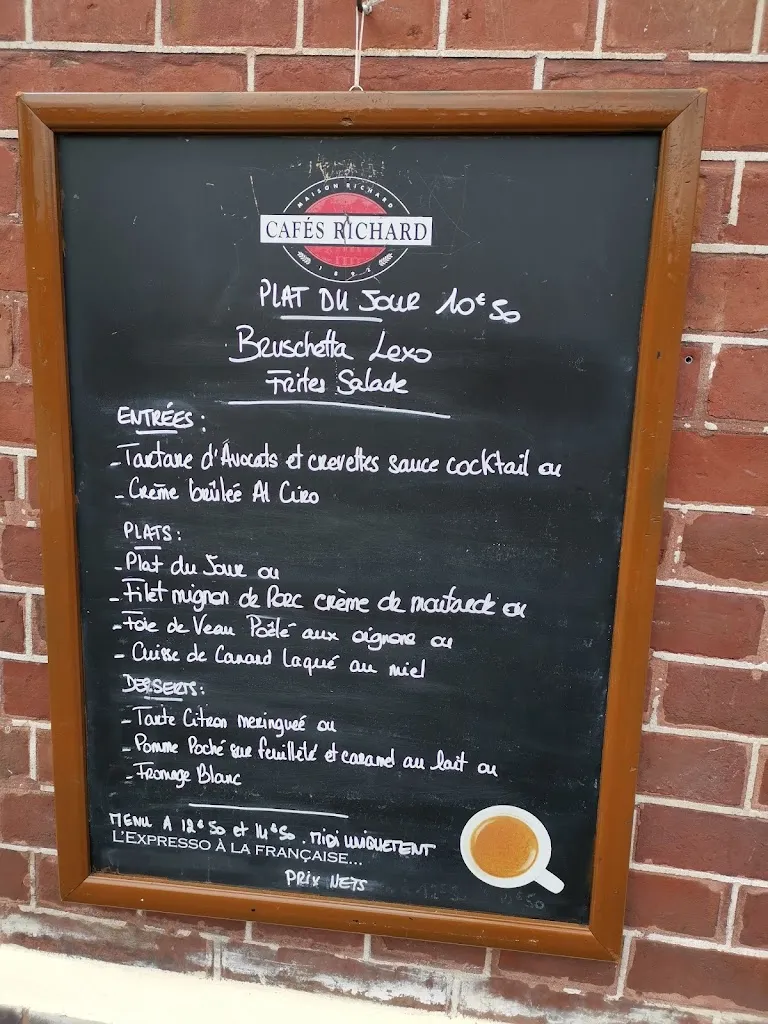 MAISON RICHARD
CAFÉS RICHARD
1892
PLAT DU JOUR 10€50
Bruschetta Lexo
Frites Salade
ENTRÉES :
- Tartare d'Avocats et crevettes sauce cocktail ou
- Crème brûlée Al Ciro
PLATS :
- Plat du Jour ou
- Filet mignon de Porc crème de moutarde ou
- Foie de Veau Poêlé aux oignons ou
- Cuisse de Canard Laqué au miel
DESSERTS :
- Tarte Citron meringueé ou
- Pomme Poché sur feuilleté et caramel au lait ou
- Fromage Blanc
MENU A 12€50 et 14€50 . MIDI UNIQUETENT
L'EXPRESSO À LA FRANÇAISE...
PRIX NETS